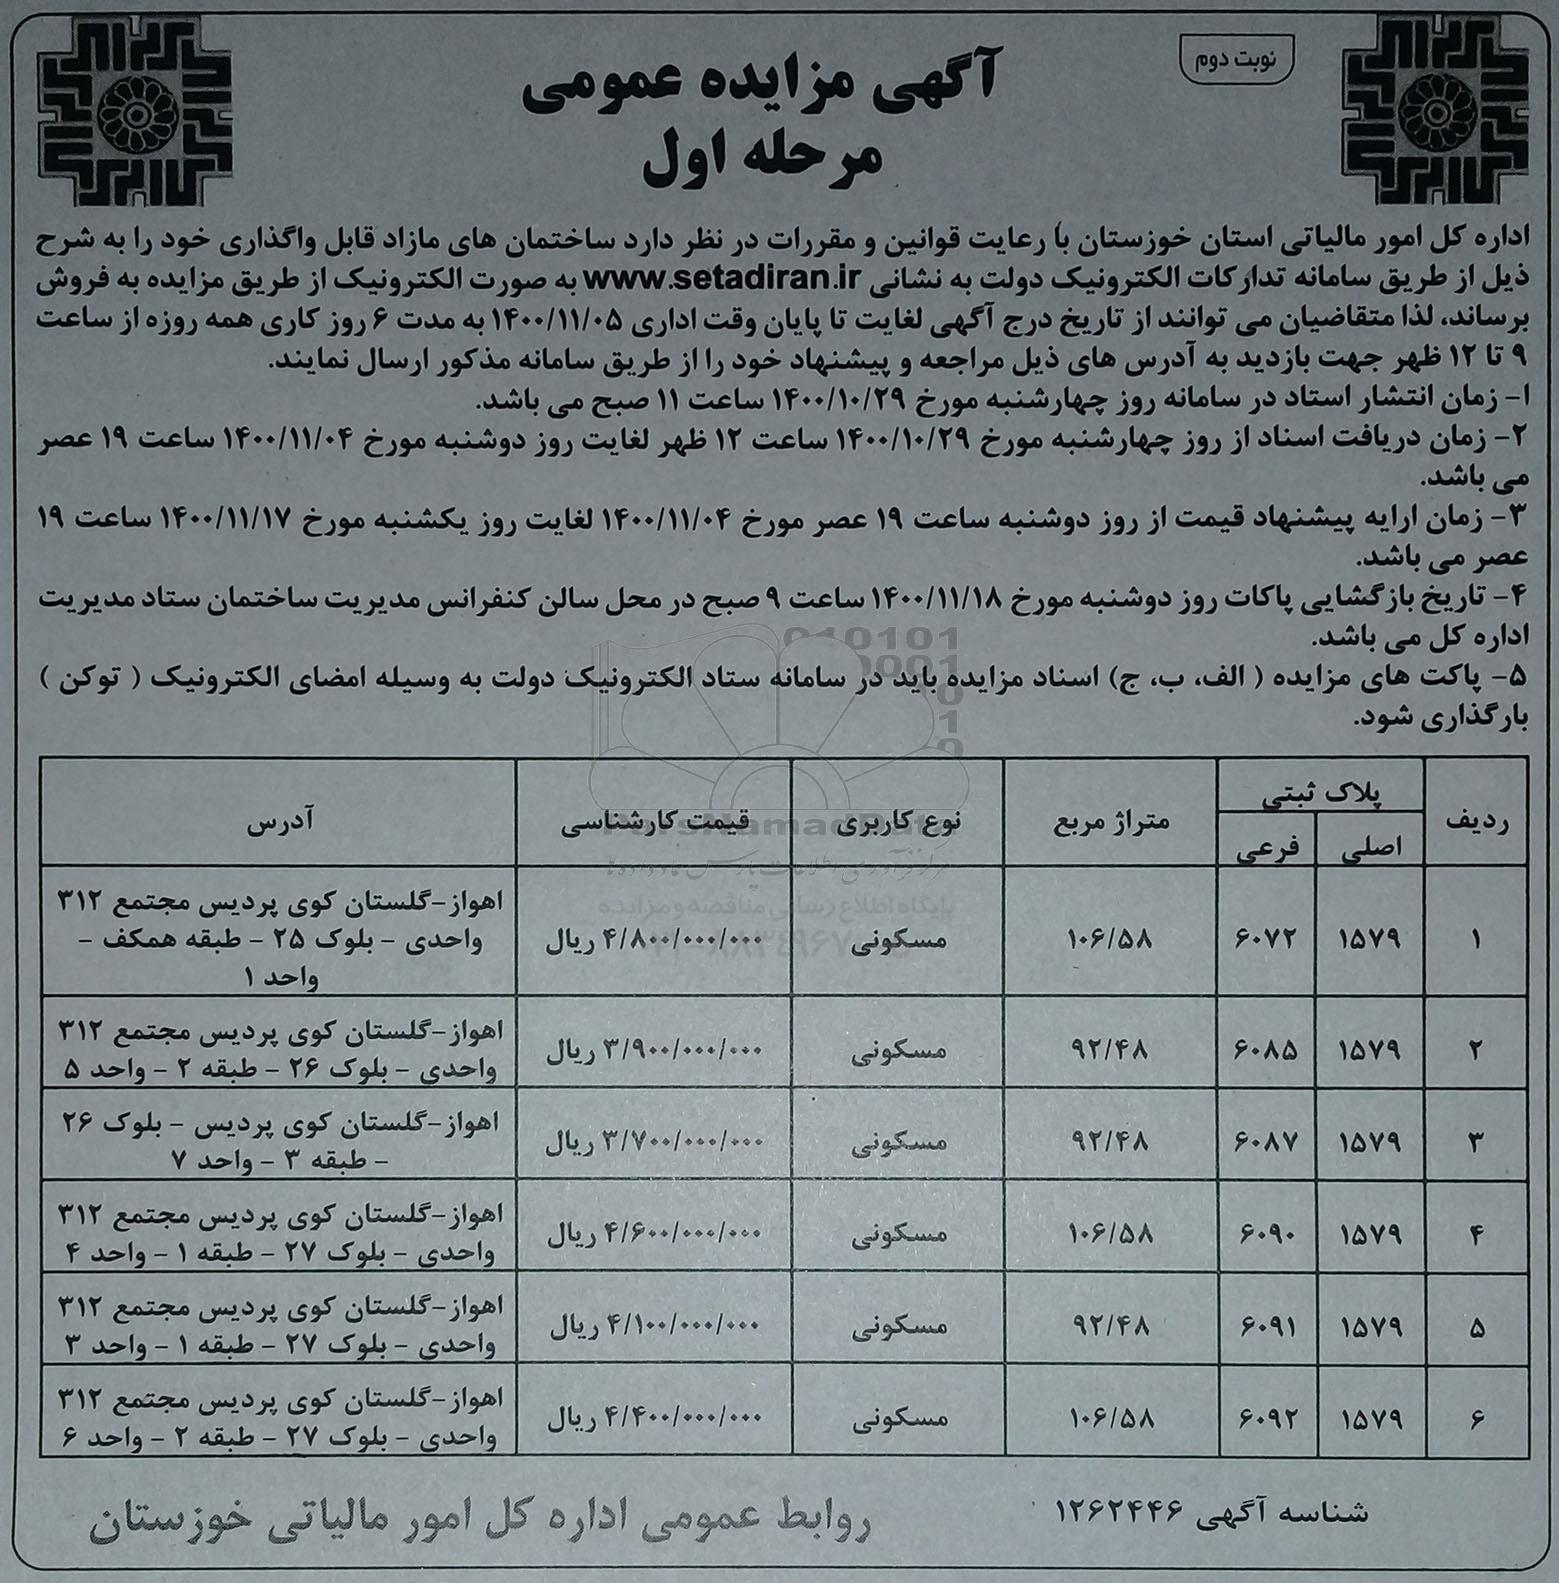 نوبت دوم
آگهی مزایده عمومی
مرحله اول
اداره کل امور مالیاتی استان خوزستان با رعایت قوانین و مقررات در نظر دارد ساختمان های مازاد قابل واگذاری خود را به شرح
ذیل از طریق سامانه تدارکات الکترونیک دولت به نشانی www.setadiran.ir به صورت الکترونیک از طریق مزایده به فروش
برساند، لذا متقاضیان می توانند از تاریخ درج آگهی لغایت تا پایان وقت اداری ۱۴۰۰/۱۱/۰۵ به مدت ۶ روز کاری همه روزه از ساعت
۹ تا ۱۲ ظهر جهت بازدید به آدرس های ذیل مراجعه و پیشنهاد خود را از طریق سامانه مذکور ارسال نمایند.
۱- زمان انتشار استاد در سامانه روز چهارشنبه مورخ ۱۴۰۰/۱۰/۲۹ ساعت ۱۱ صبح می باشد.
۲- زمان دریافت اسناد از روز چهارشنبه مورخ ۱۴۰۰/۱۰/۲۹ ساعت ۱۲ ظهر لغایت روز دوشنبه مورخ ۱۴۰۰/۱۱/۰۴ ساعت ۱۹ عصر
می باشد.
۳- زمان ارایه پیشنهاد قیمت از روز دوشنبه ساعت ۱۹ عصر مورخ ۱۴۰۰/۱۱/۰۴ لغایت روز یکشنبه مورخ ۱۴۰۰/۱۱/۱۷ ساعت ۱۹
عصر می باشد.
۴- تاریخ بازگشایی پاکات روز دوشنبه مورخ ۱۴۰۰/۱۱/۱۸ ساعت ۹ صبح در محل سالن کنفرانس مدیریت ساختمان ستاد مدیریت
اداره کل می باشد.
۵- پاکت های مزایده ( الف، ب، ج) اسناد مزایده باید در سامانه ستاد الکترونیک دولت به وسیله امضای الکترونیک ( توکن )
بارگذاری شود.
ردیف پلاک ثبتی متراژ مربع نوع کاربری قیمت کارشناسی آدرس
اصلی فرعی
۱ ۱۵۷۹ ۶۰۷۲ ۱۰۶/۵۸ مسکونی ۴/۸۰۰/۰۰۰/۰۰۰ ریال اهواز-گلستان کوی پردیس مجتمع ۳۱۲
واحدی - بلوک ۲۵ - طبقه همکف -
واحد ۱
۲ ۱۵۷۹ ۶۰۸۵ ۹۲/۴۸ مسکونی ۳/۹۰۰/۰۰۰/۰۰۰ ریال اهواز-گلستان کوی پردیس مجتمع ۳۱۲
واحدی - بلوک ۲۶ - طبقه ۲ - واحد ۵
۳ ۱۵۷۹ ۶۰۸۷ ۹۲/۴۸ مسکونی ۳/۷۰۰/۰۰۰/۰۰۰ ریال اهواز-گلستان کوی پردیس - بلوک ۲۶
- طبقه ۳ - واحد ۷
۴ ۱۵۷۹ ۶۰۹۰ ۱۰۶/۵۸ مسکونی ۴/۶۰۰/۰۰۰/۰۰۰ ریال اهواز-گلستان کوی پردیس مجتمع ۳۱۲
واحدی - بلوک ۲۷ - طبقه ۱ - واحد ۴
۵ ۱۵۷۹ ۶۰۹۱ ۹۲/۴۸ مسکونی ۴/۱۰۰/۰۰۰/۰۰۰ ریال اهواز-گلستان کوی پردیس مجتمع ۳۱۲
واحدی - بلوک ۲۷ - طبقه ۱ - واحد ۳
۶ ۱۵۷۹ ۶۰۹۲ ۱۰۶/۵۸ مسکونی ۴/۴۰۰/۰۰۰/۰۰۰ ریال اهواز-گلستان کوی پردیس مجتمع ۳۱۲
واحدی - بلوک ۲۷ - طبقه ۲ - واحد ۶
شناسه آگهی ۱۲۶۲۴۴۶
روابط عمومی اداره کل امور مالیاتی خوزستان
پایگاه اطلاع رسانی مناقصه و مزایده